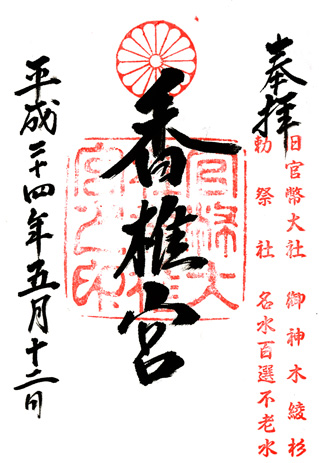 奉拝
旧官幣大社 御神木綾杉
勅祭社 名水百選不老水
香椎宮
平成二十四年五月十二日